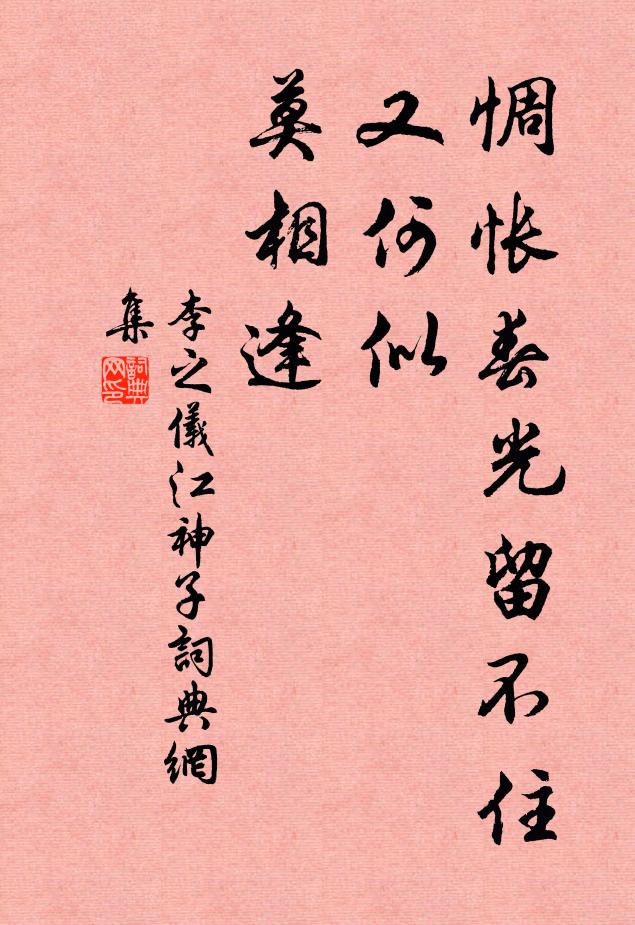 惆悵春光留不住
又何似
莫相逢
李之儀江神子詞典網
集
詞典
网印